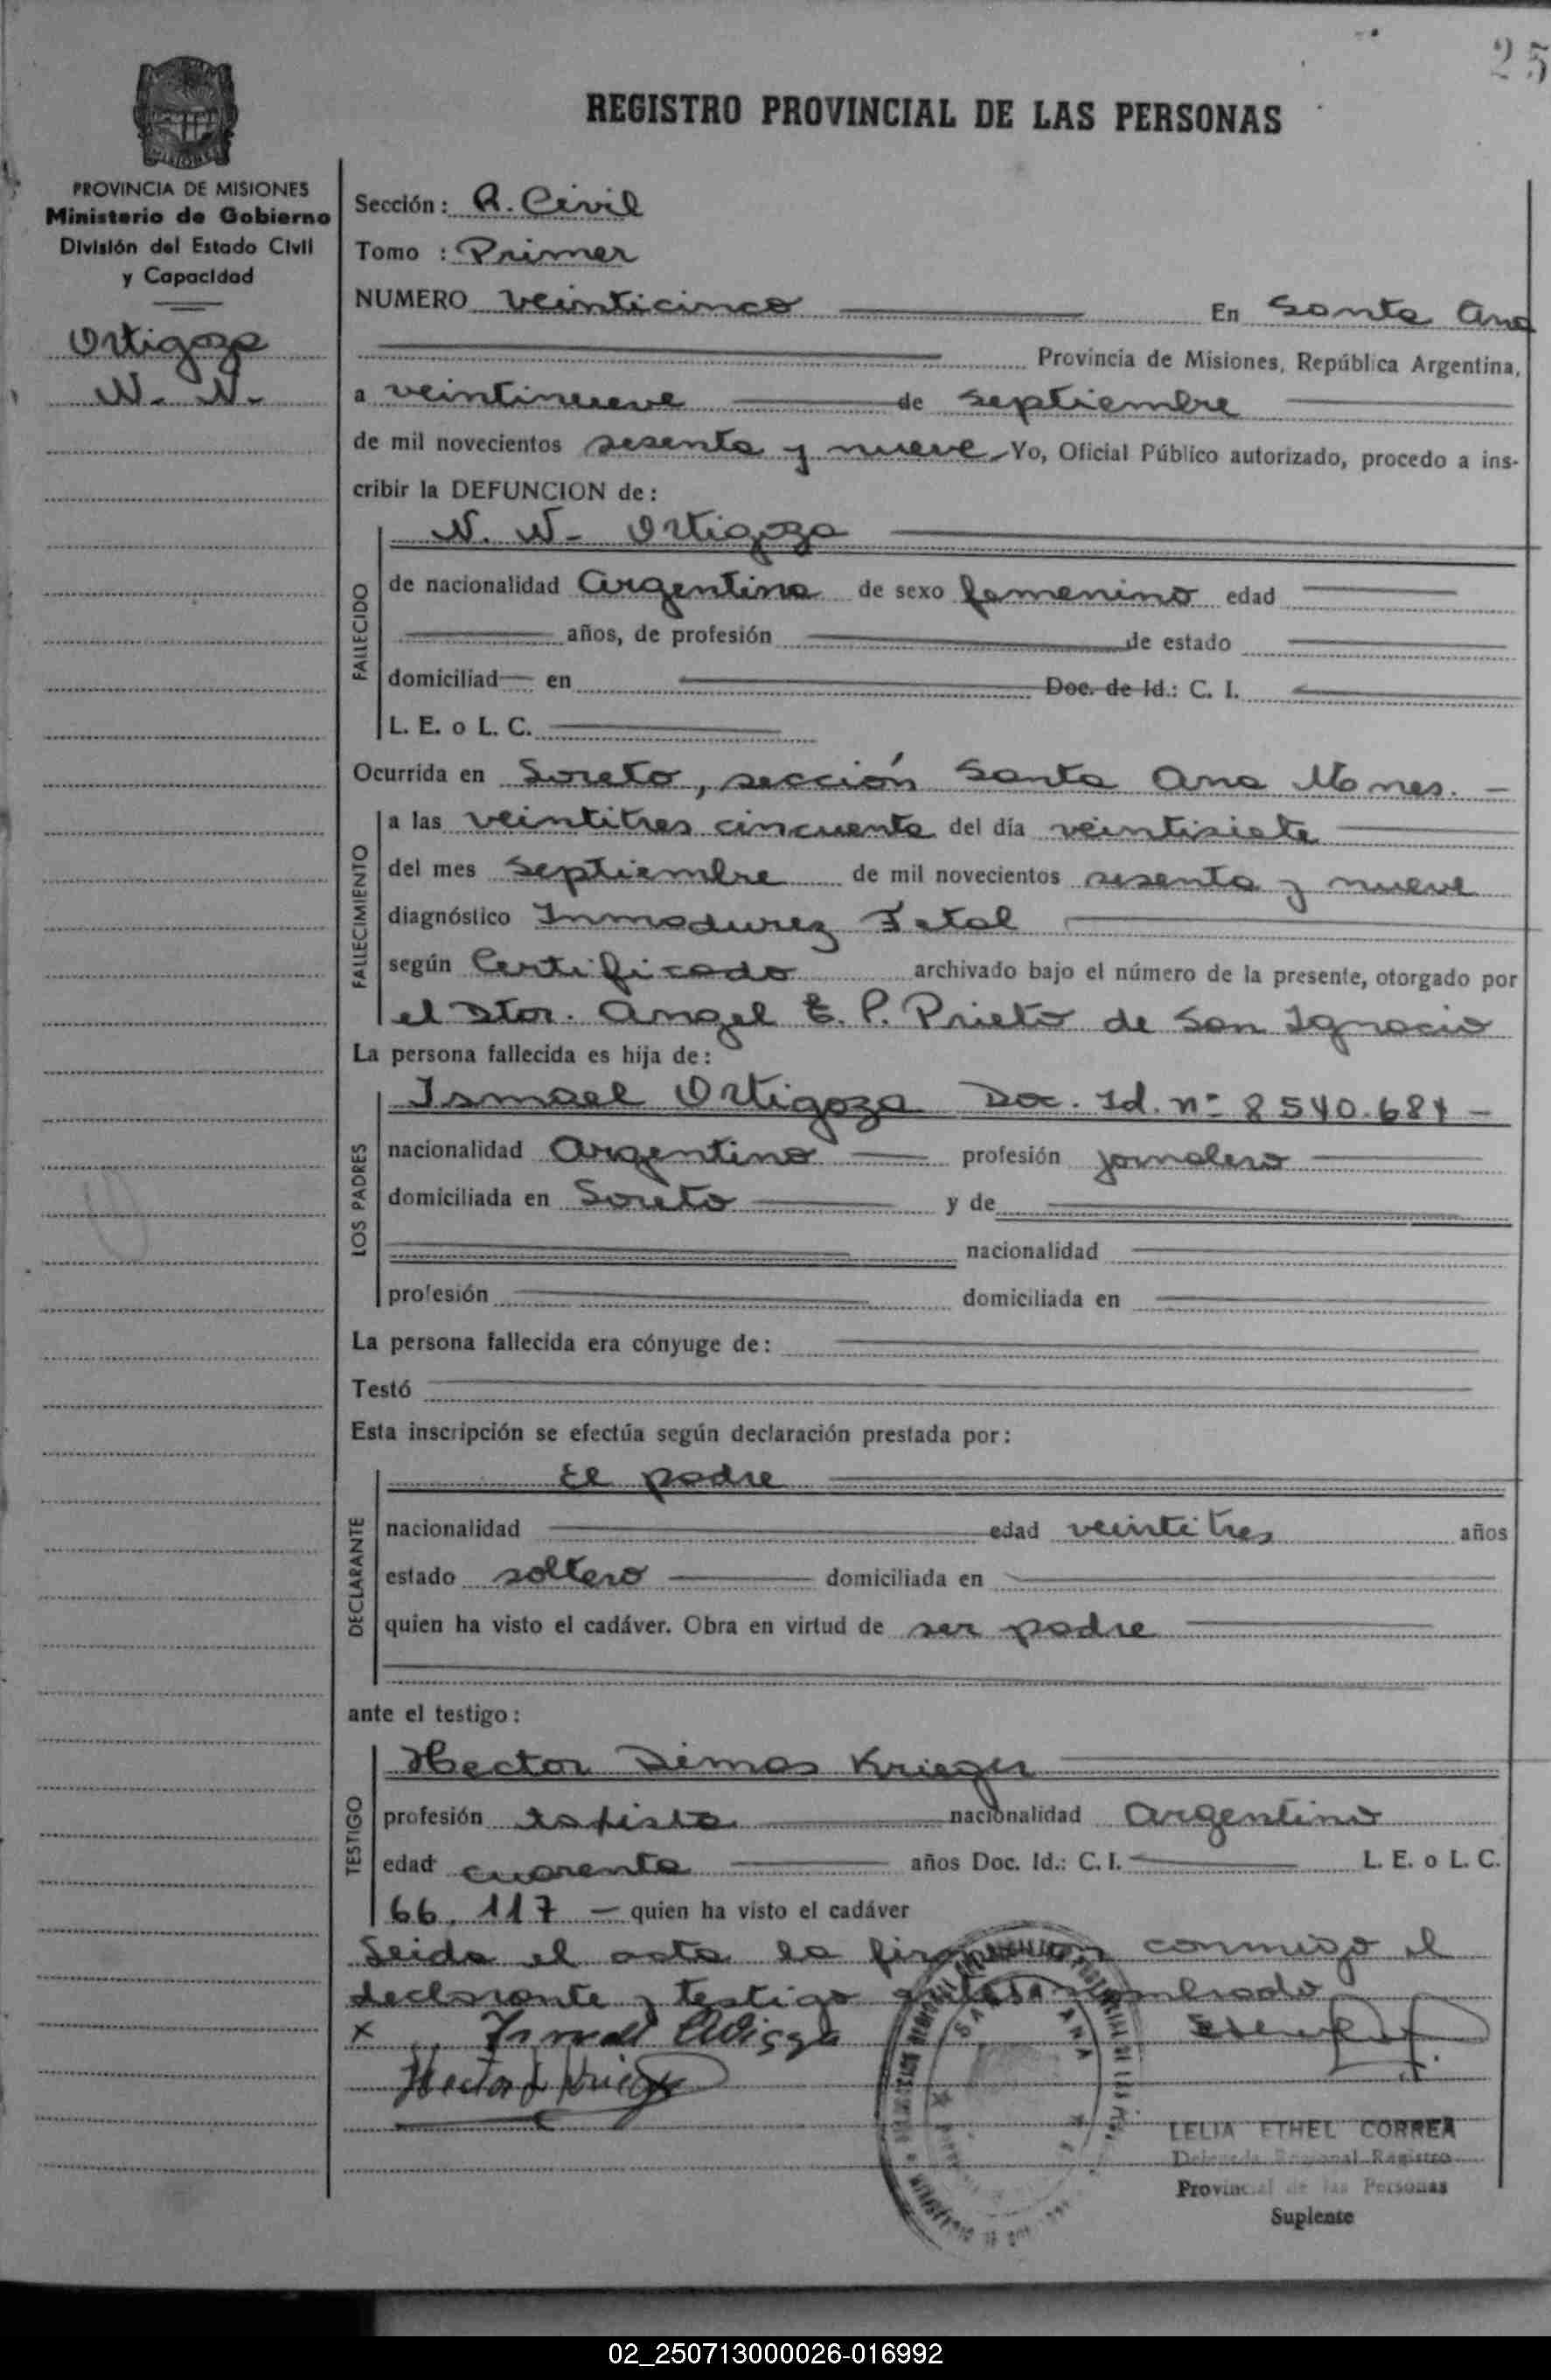 25
REGISTRO PROVINCIAL DE LAS PERSONAS
MISIONES
PROVINCIA DE MISIONES
Ministerio de Gobierno
División del Estado Civil
y Capacidad
Ortigoza
N. N.
Sección: R. Civil
Tomo : Primer
NUMERO veinticinco En Santa Ana
Provincia de Misiones, República Argentina,
a veintinueve de septiembre
de mil novecientos sesenta y nueve Yo, Oficial Público autorizado, procedo a ins-
cribir la DEFUNCION de:
N. N. Ortigoza
FALLECIDO
de nacionalidad argentina de sexo femenino edad
años, de profesión de estado
domiciliad en Doc. de Id.: C. I.
L. E. o L. C.
Ocurrida en Loreto, sección Santa Ana Mones. -
FALLECIMIENTO
a las veintitres cincuenta del día veintisiete
del mes septiembre de mil novecientos sesenta y nueve
diagnóstico Inmadurez Fetal
según Certificado archivado bajo el número de la presente, otorgado por
el Dtor. Angel E. P. Prieto de San Ignacio
La persona fallecida es hija de:
LOS PADRES
Ismael Ortigoza Doc. Id. nº 8540.684 -
nacionalidad argentino profesión jornalero
domiciliada en Loreto y de
nacionalidad
profesión domiciliada en
La persona fallecida era cónyuge de:
Testó
Esta inscripción se efectúa según declaración prestada por:
DECLARANTE
El padre
nacionalidad edad veintitres años
estado soltero domiciliada en
quien ha visto el cadáver. Obra en virtud de ser padre
ante el testigo:
TESTIGO
Hector Dimas Krieger
profesión nacionalidad argentino
edad cuarenta años Doc. Id.: C. I. L. E. o L. C.
66.117 - quien ha visto el cadáver
Leida el acta la firman conmigo el
declarante y testigo antes nombrado
x Ismael Ortigoza
Hector D Krieger
SANTA ANA
LELIA ETHEL CORREA
Delegada Regional Registro
Provincial de las Personas
Suplente
02_250713000026-016992